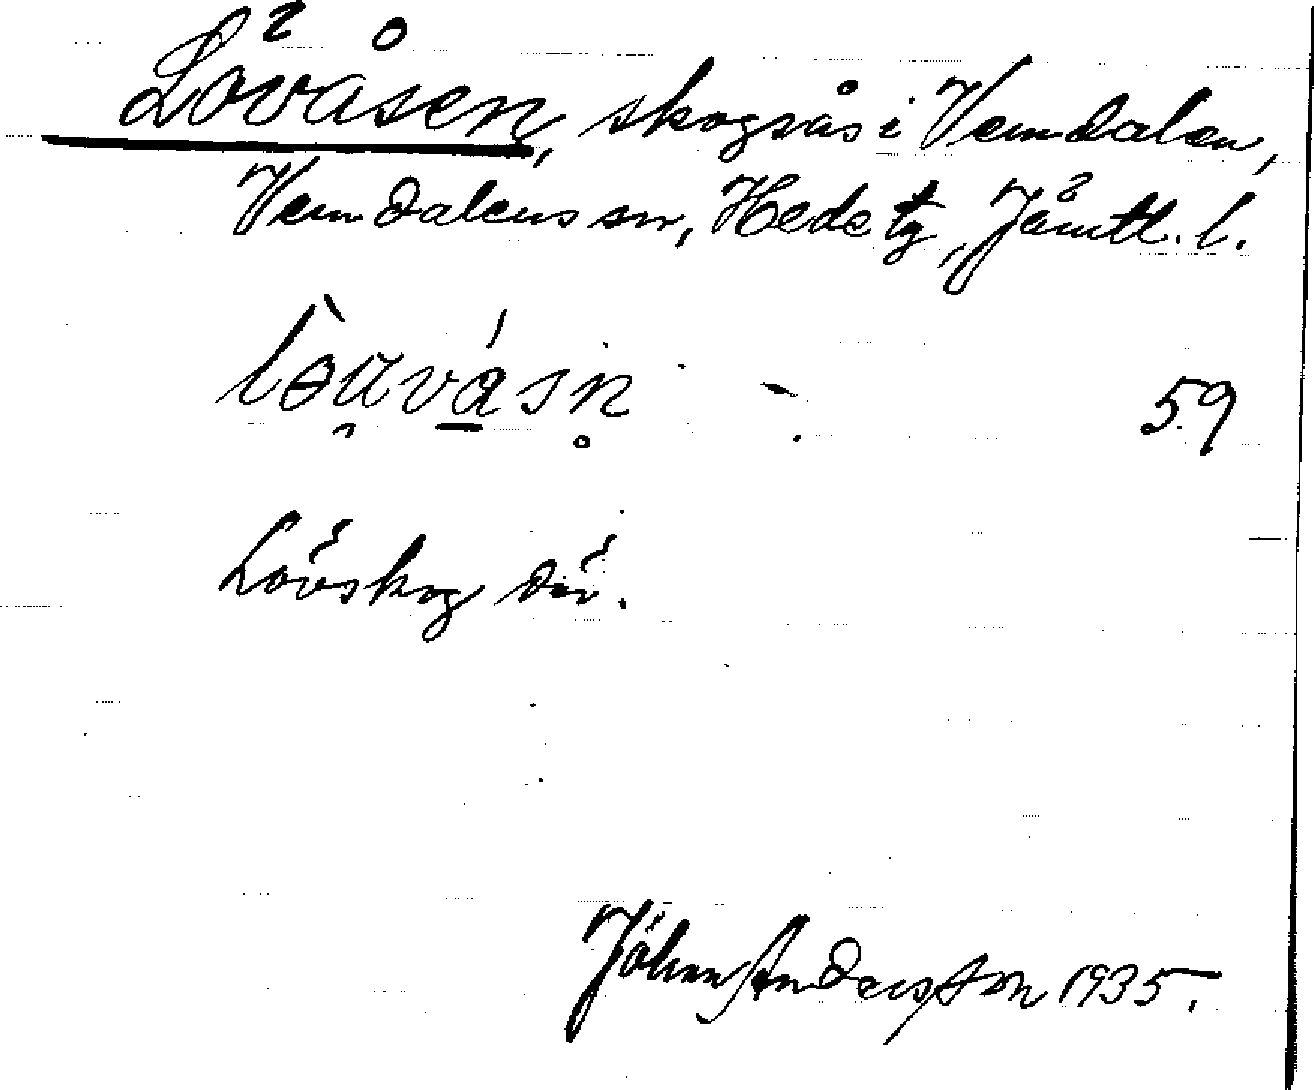 Lövåsen, skogsås i Vemdalen,
Vemdalens sn, Hede tg, Jämtl. l.
59
Lövskog där.
Johan Andersson 1935.